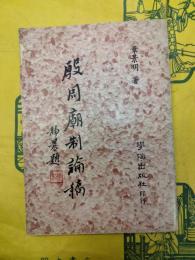 章景明 著
殷周廟制論稿
學海出版社印行